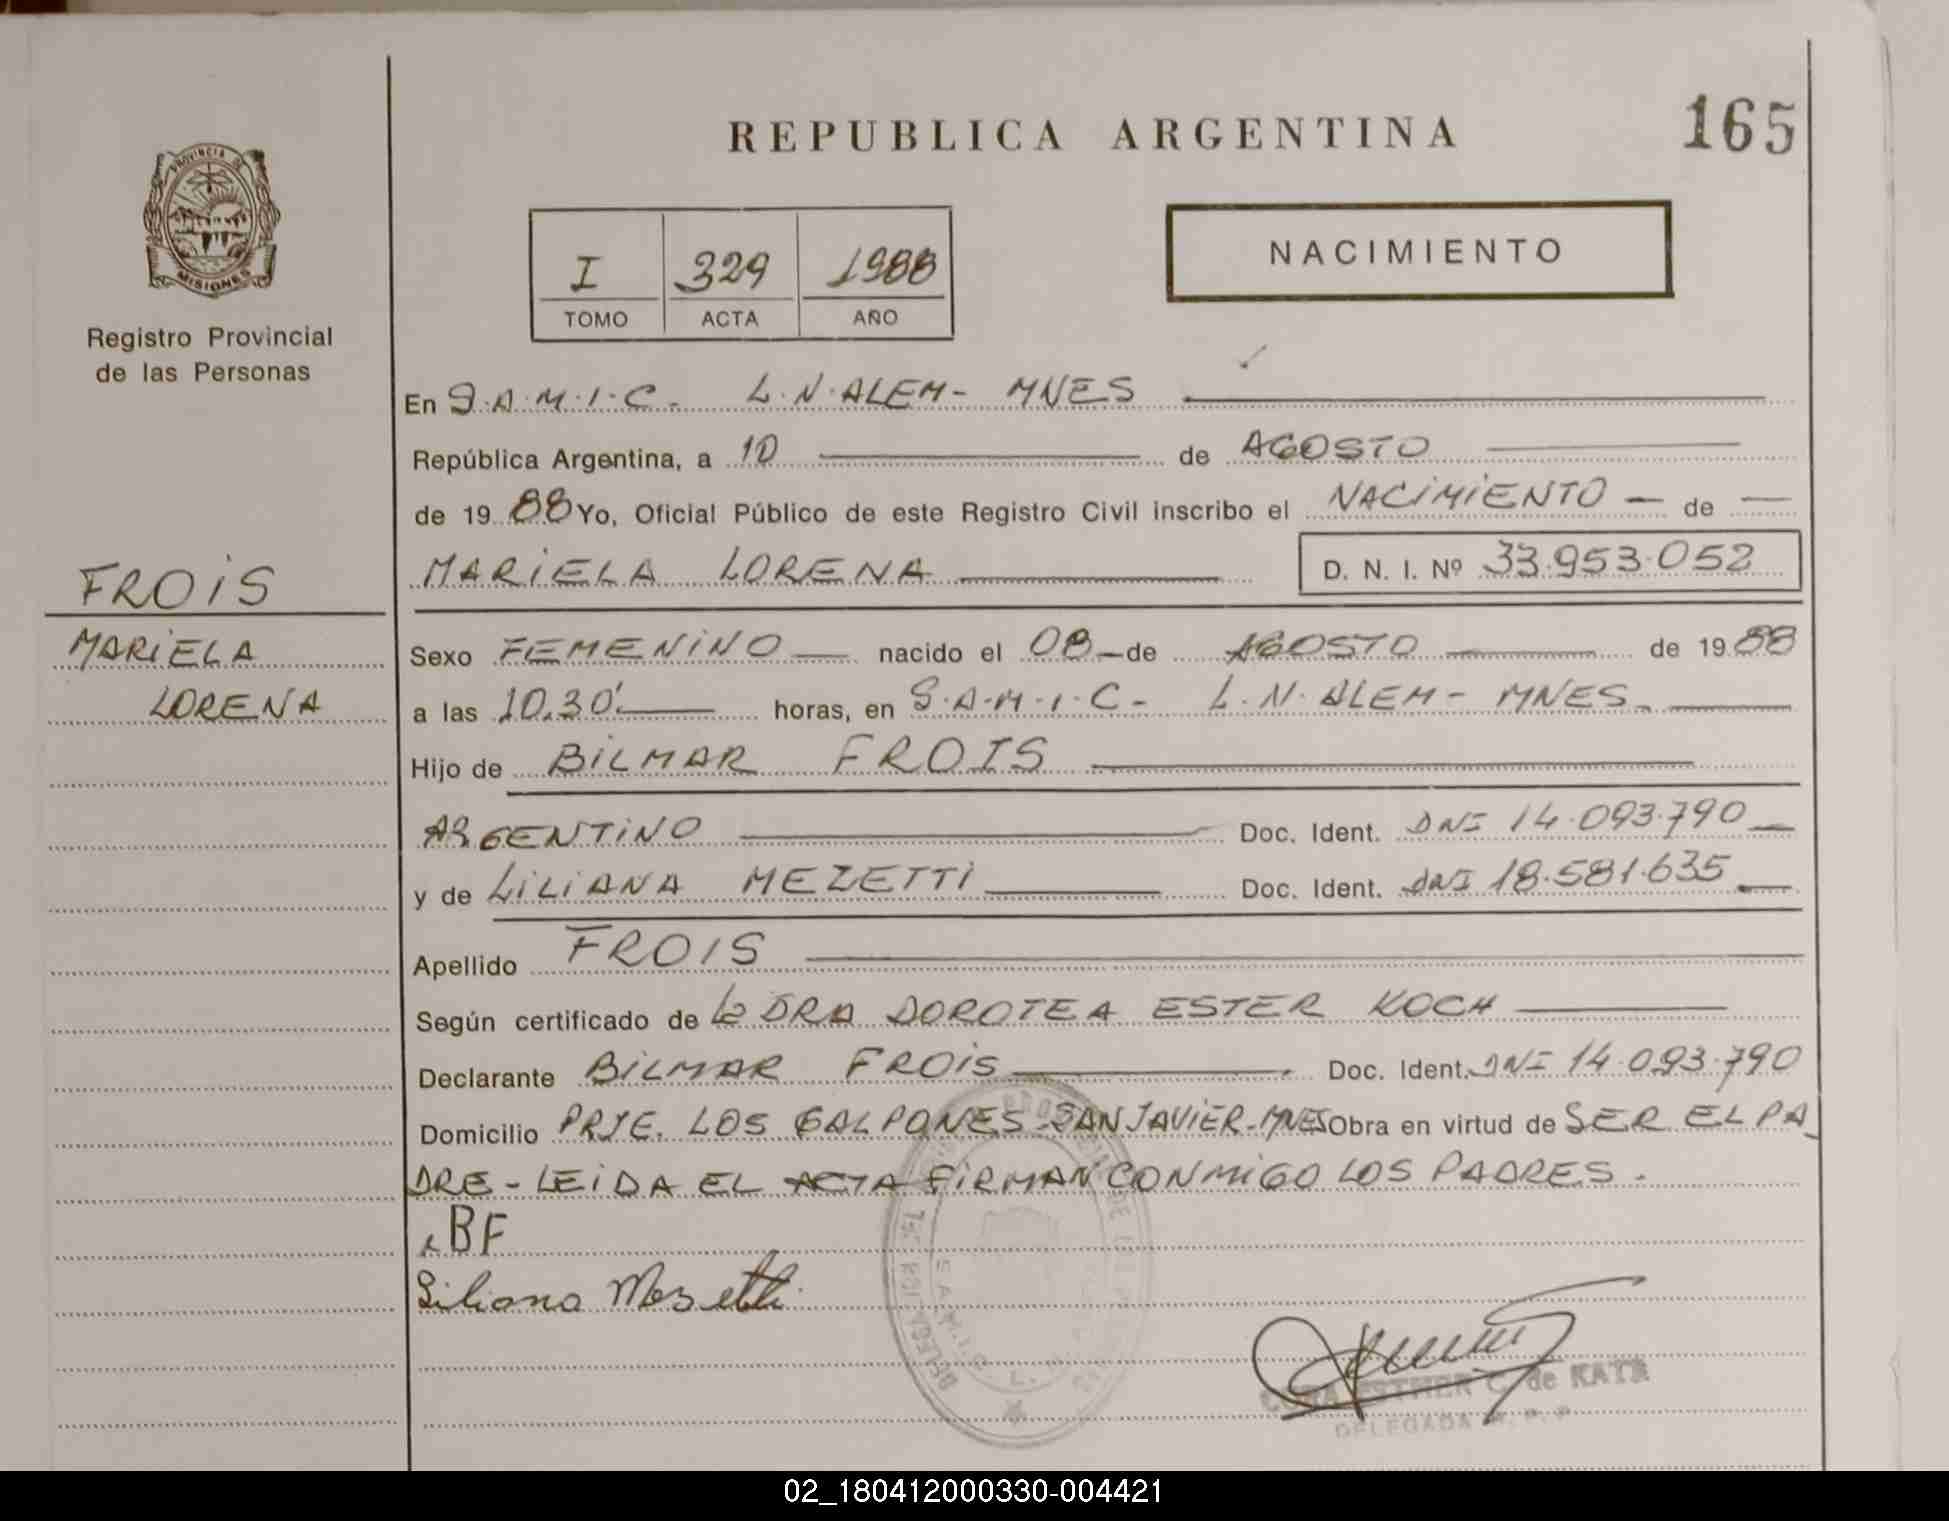 REPUBLICA ARGENTINA
165
PROVINCIA DE
MISIONES
Registro Provincial
de las Personas
NACIMIENTO
I 329 1988
TOMO ACTA AÑO
En S.A.M.I.C. L.N.ALEM- MNES
República Argentina, a 10 de AGOSTO
de 1988 Yo, Oficial Público de este Registro Civil inscribo el NACIMIENTO de
MARIELA LORENA D. N. I. Nº 33.953.052
FROIS
MARIELA
LORENA
Sexo FEMENINO nacido el 08 de AGOSTO de 1988
a las 10.30' horas, en S.A.M.I.C- L.N.ALEM- MNES
Hijo de BILMAR FROIS
ARGENTINO Doc. Ident. DNI 14.093.790
y de LILIANA MEZETTI Doc. Ident. DNI 18.581.635
Apellido FROIS
Según certificado de La DRA DOROTEA ESTER KOCH
Declarante BILMAR FROIS Doc. Ident. DNI 14.093.790
Domicilio PRJE. LOS GALPONES-SAN JAVIER-MNES Obra en virtud de SER EL PA
DRE-LEIDA EL ACTA FIRMAN CONMIGO LOS PADRES.
BF
Liliana Mezetti
ESTHER C. de KATA
DELEGADA R. P. P.
02_180412000330-004421